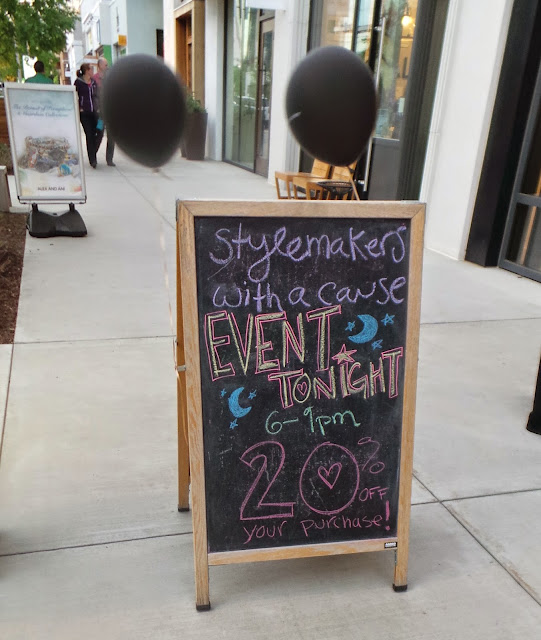 stylemakers
with a cause
EVENT
TONIGHT
6-9pm
20%
OFF
your purchase!
ALEX AND ANI